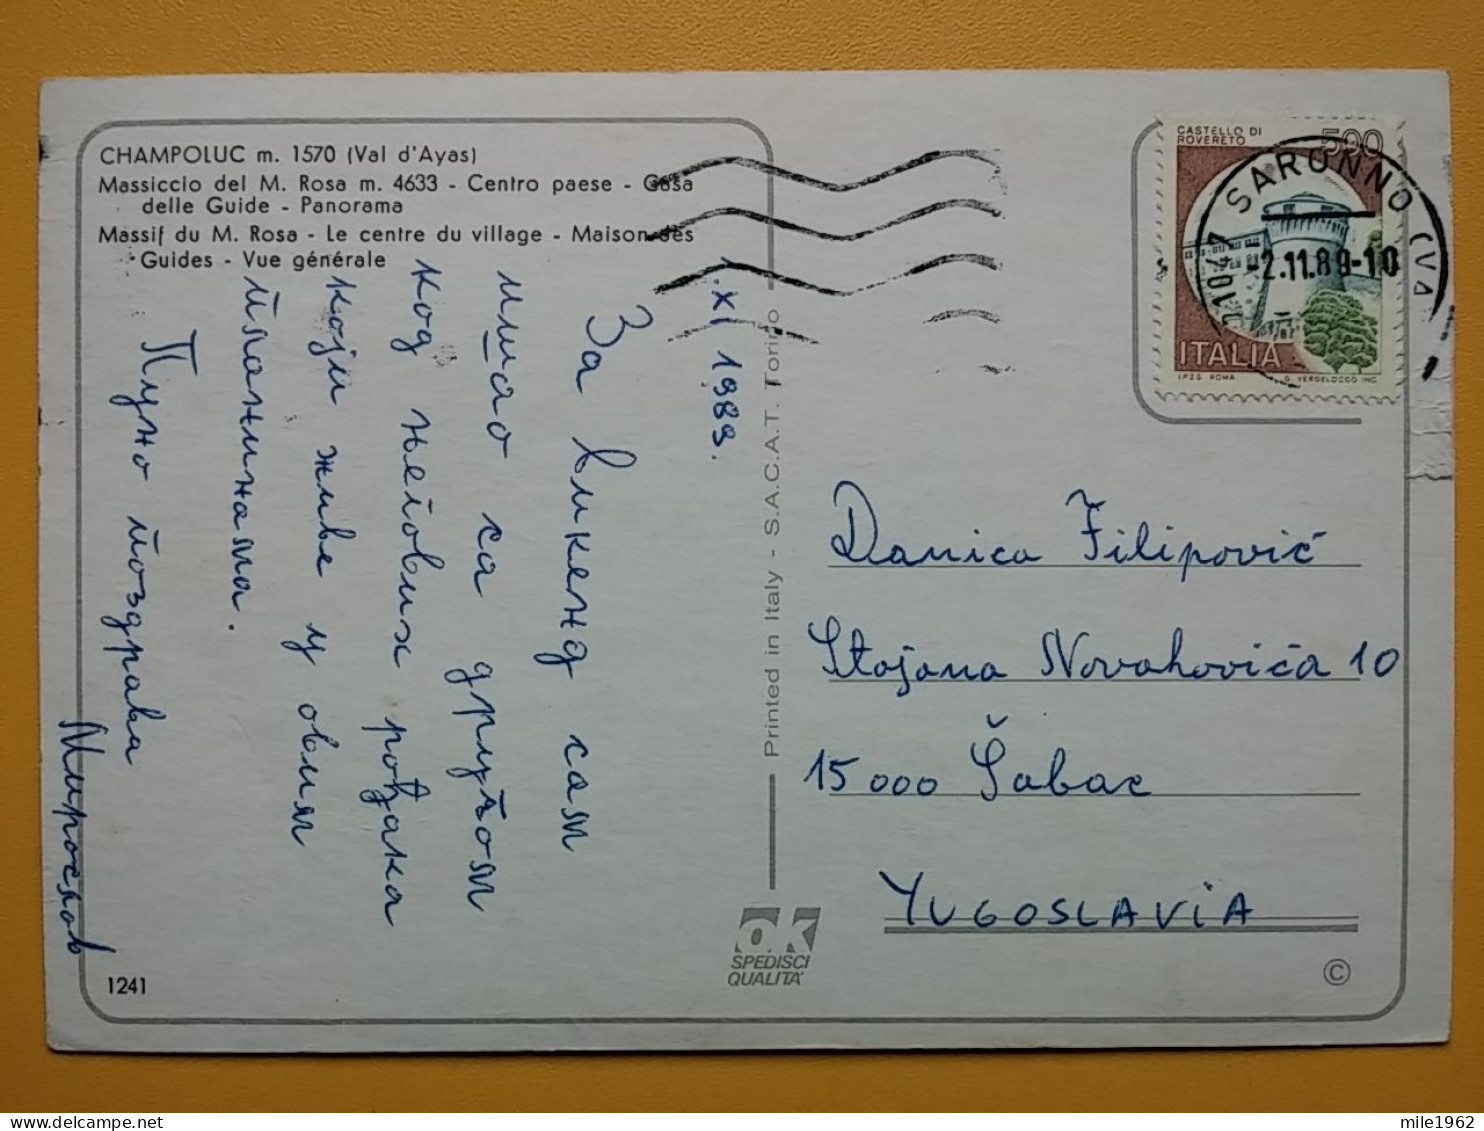 CHAMPOLUC m. 1570 (Val d'Ayas)
Massiccio del M. Rosa m. 4633 - Centro paese - Casa
delle Guide - Panorama
Massif du M. Rosa - Le centre du village - Maison des
Guides - Vue générale
1. XI 1989.
За викенд сам
ишао са другом
код његових рођака
који живе у овим
планинама.
Пуно поздрава
Мирослав
1241
Printed in Italy - S.A.C.A.T. Torino
OK
SPEDISCI
QUALITA'
CASTELLO DI
ROVERETO
500
ITALIA
I.P.Z.S. ROMA
G. VERDELOCCO INC.
21047 SARONNO (VA
-2.11.89-10
Danica Filipović
Stojana Novakovića 10
15000 Šabac
YUGOSLAVIA
©
mile1962